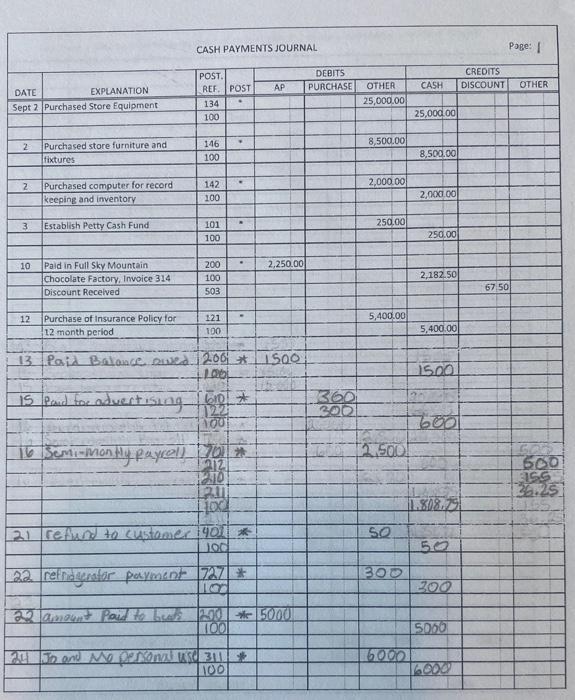 CASH PAYMENTS JOURNAL Page: 1
DEBITS CREDITS
DATE EXPLANATION POST. REF. POST AP PURCHASE OTHER CASH DISCOUNT OTHER
Sept 2 Purchased Store Equipment 134 * 25,000.00
100 25,000.00
2 Purchased store furniture and 146 * 8,500.00
fixtures 100 8,500.00
2 Purchased computer for record 142 * 2,000.00
keeping and inventory 100 2,000.00
3 Establish Petty Cash Fund 101 * 250.00
100 250.00
10 Paid in Full Sky Mountain 200 * 2,250.00
Chocolate Factory, Invoice 314 100 2,182.50
Discount Received 503 67.50
12 Purchase of Insurance Policy for 121 * 5,400.00
12 month period 100 5,400.00
13 Paid Balance owed 200 * 1500
100 1500
15 Paid for advertising 610 * 360
122 300
100 600
16 Semi-Montly payroll 701 * 2,500
212 500
210 155
211 36.25
100 1.808.75
21 refund to customer 402 * 50
100 50
22 refridgerator payment 727 * 300
100 300
22 amount Paid to 200 * 5000
100 5000
24 Jo and Mo personal use 311 * 6000
100 6000